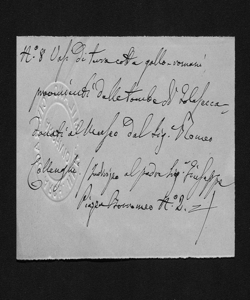 N.° 8 Vasi di terra cotta gallo-romani
provenienti dalle tombe di Golasecca
donati al Museo dal Sig. Romeo
presso il padre Sig. Giuseppe
Piazza Borromeo N.° 2.